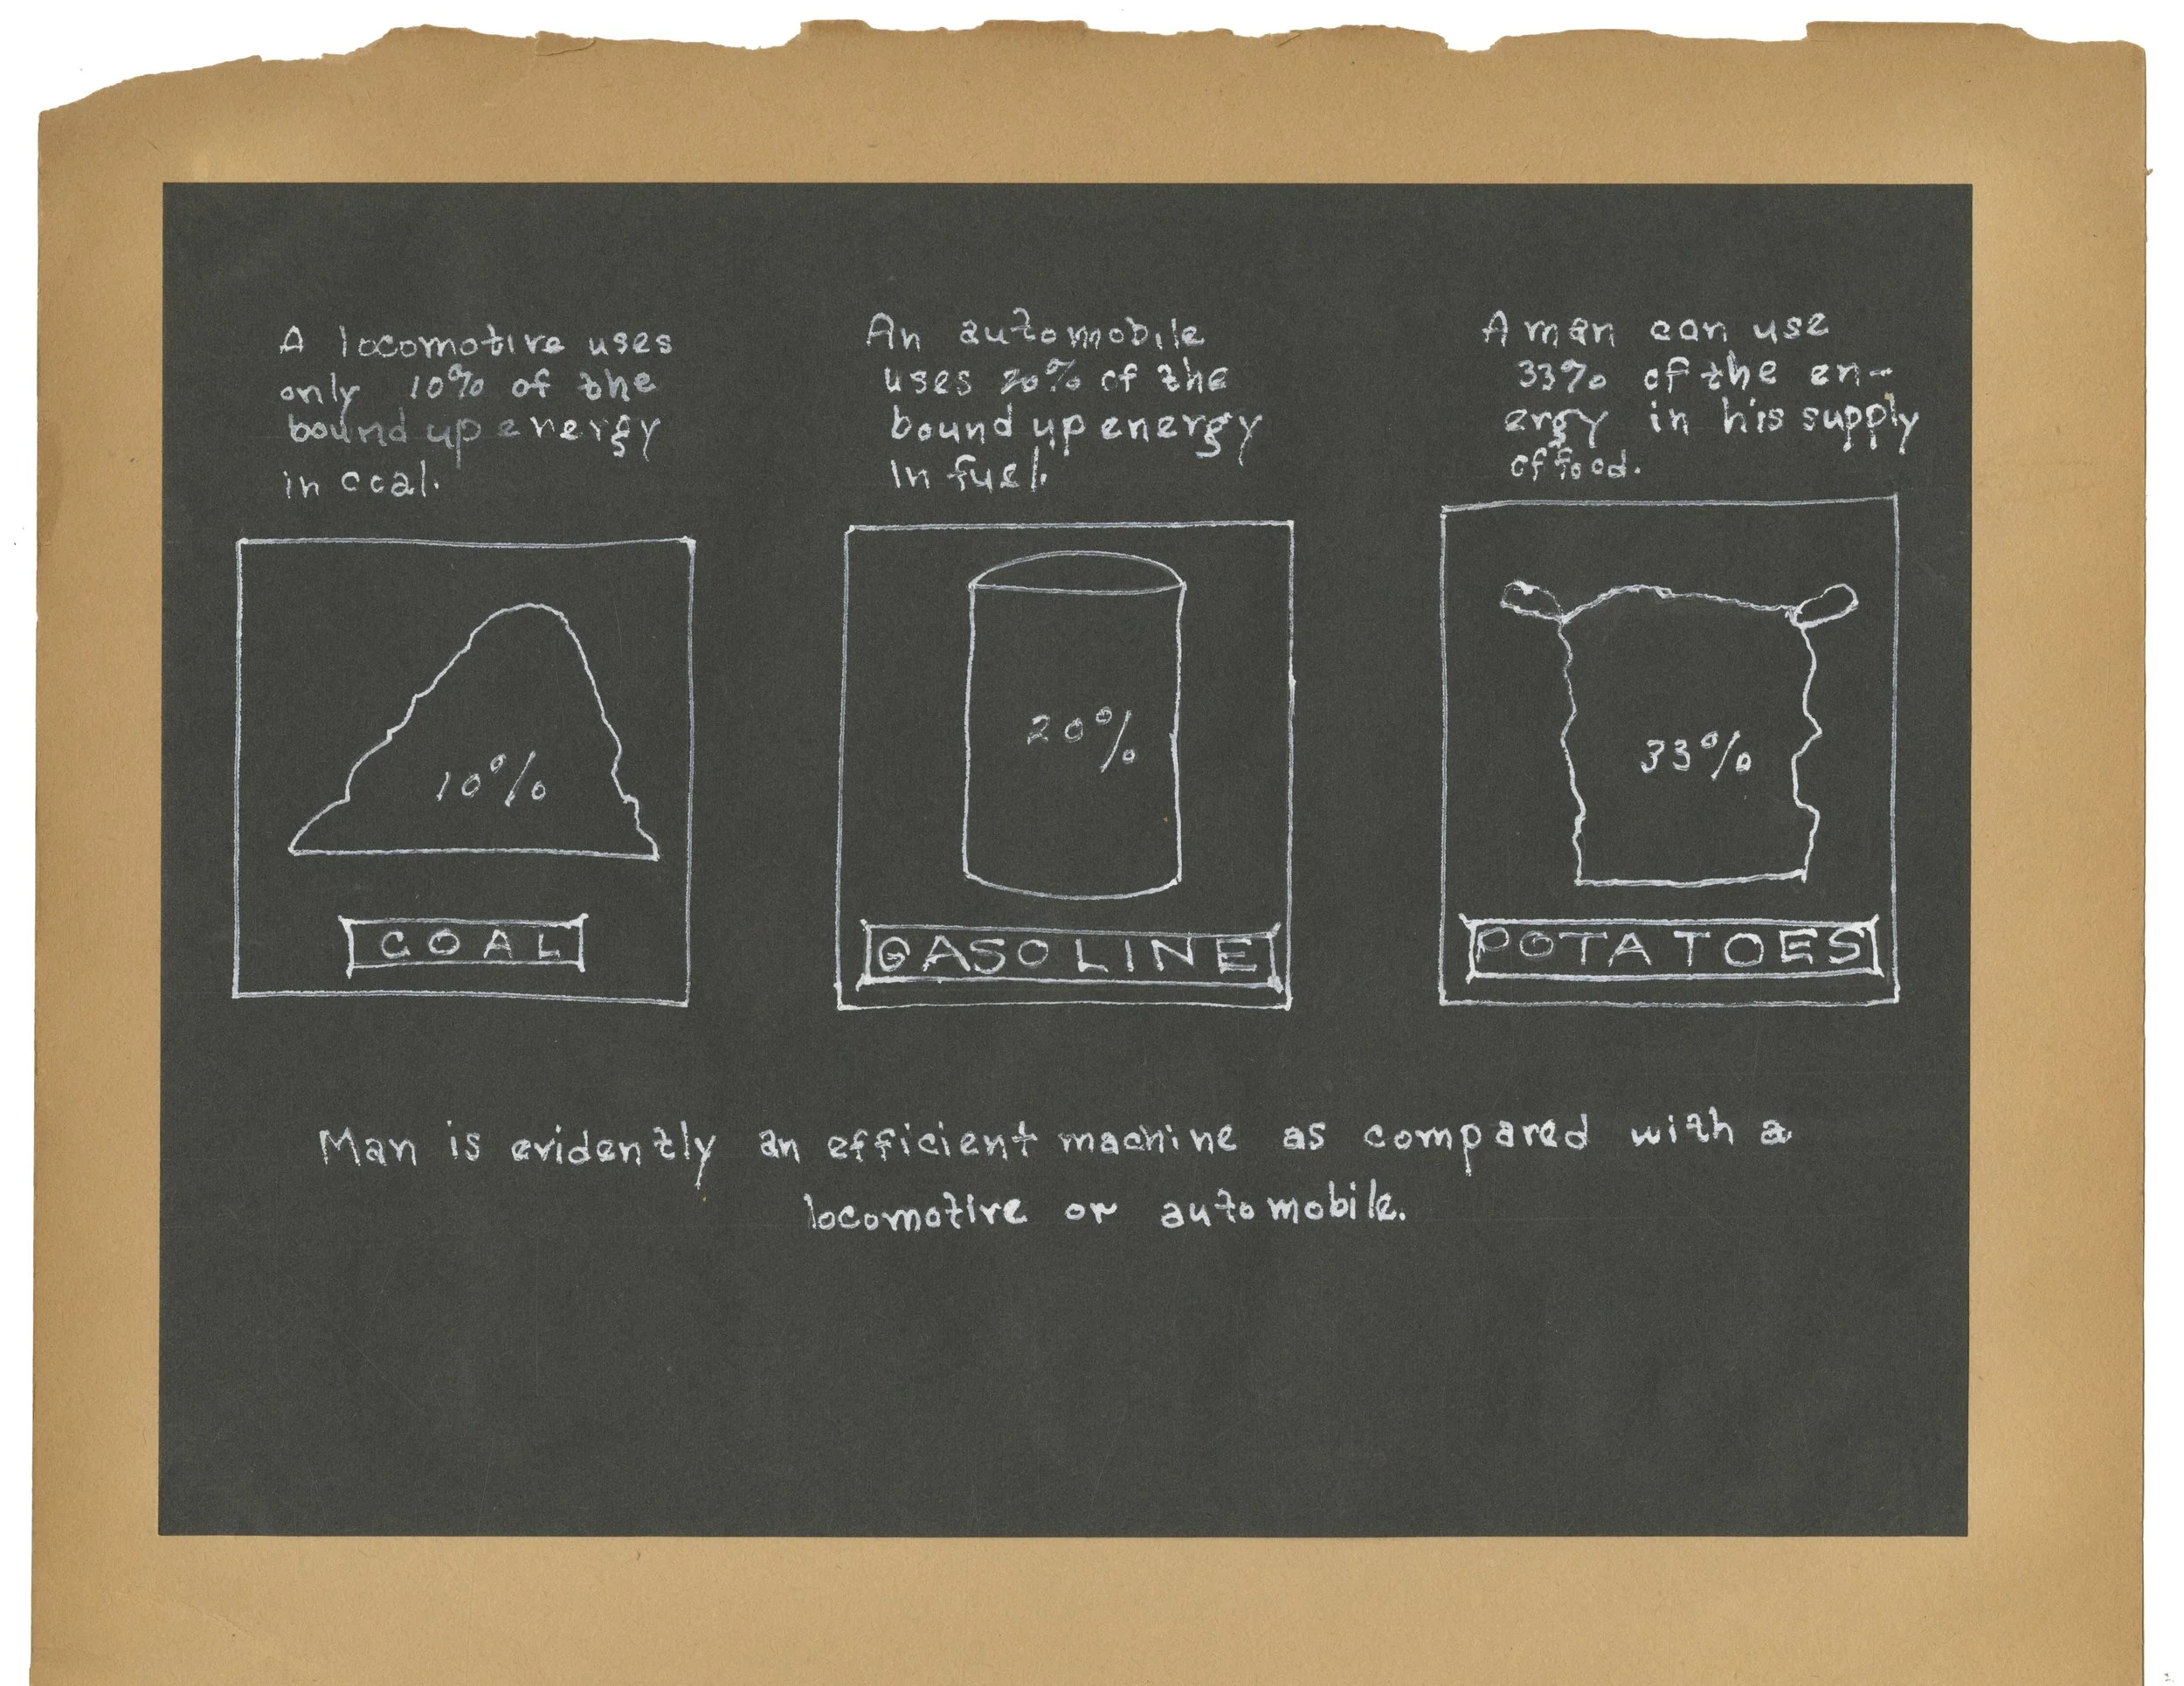 A locomotive uses
only 10% of the
bound up energy
in coal.
An automobile
uses 20% of the
bound up energy
in fuel.
A man can use
33% of the en-
ergy in his supply
of food.
10%
COAL
20%
GASOLINE
33%
POTATOES
Man is evidently an efficient machine as compared with a
locomotive or automobile.